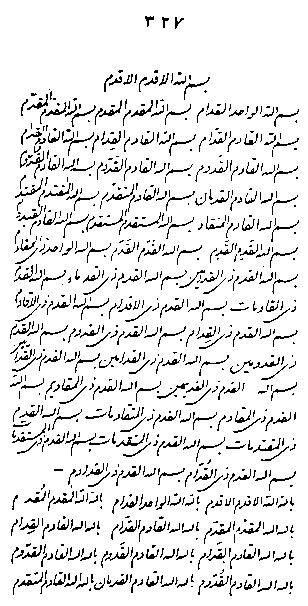 ٣٢٧
بسم الله الاقدم الاقدم
بسم الله الواحد القدام بسم الله المقدم المقدم بسم الله المقدم المقدم
بسم الله القادم القدام بسم الله القادم القدام بسم الله القادم القدام
بسم الله القادم القدوم بسم الله القادم القدوم بسم الله القادم
بسم الله القادم القدمان بسم الله القادم المتقدم بسم الله المقتدم المقتدم
بسم الله القادم المتقاد بسم الله المستقدم المستقدم بسم الله القادم القديم
بسم الله القدم القدم بسم الله القدم القدم بسم الله الواحد ذي
بسم الله القدم ذي القدمين بسم الله القدم ذي القدماء بسم الله القدم
ذي القادمات بسم الله القدم ذي الاقدام بسم الله القدم ذي الاقادم
بسم الله القدم ذي القدام بسم الله القدم ذي القدوم بسم الله القدم
ذي القدومين بسم الله القدم ذي القدامين بسم الله القدم ذي
بسم الله القدم ذي القديمين بسم الله القدم ذي المقاديم بسم الله
القدم ذي المقادم بسم الله القدم ذي المتقادمات بسم الله القدم
ذي المتقدمات بسم الله القدم ذي المتقدمات بسم الله القدم ذي
بسم الله القدم ذي القدام بسم الله القدم ذي القدادم
بالله الله الاقدم الاقدم بالله الله الواحد القدام بالله الله المقدم المقدم
بالله الله المقدم المقدم بالله الله القادم القدام بالله الله القادم القدام
بالله الله القادم القدام بالله الله القادم القدوم بالله الله القادم القدوم
بالله الله القادم القدوم بالله الله القادم القدمان بالله الله القادم المتقدم